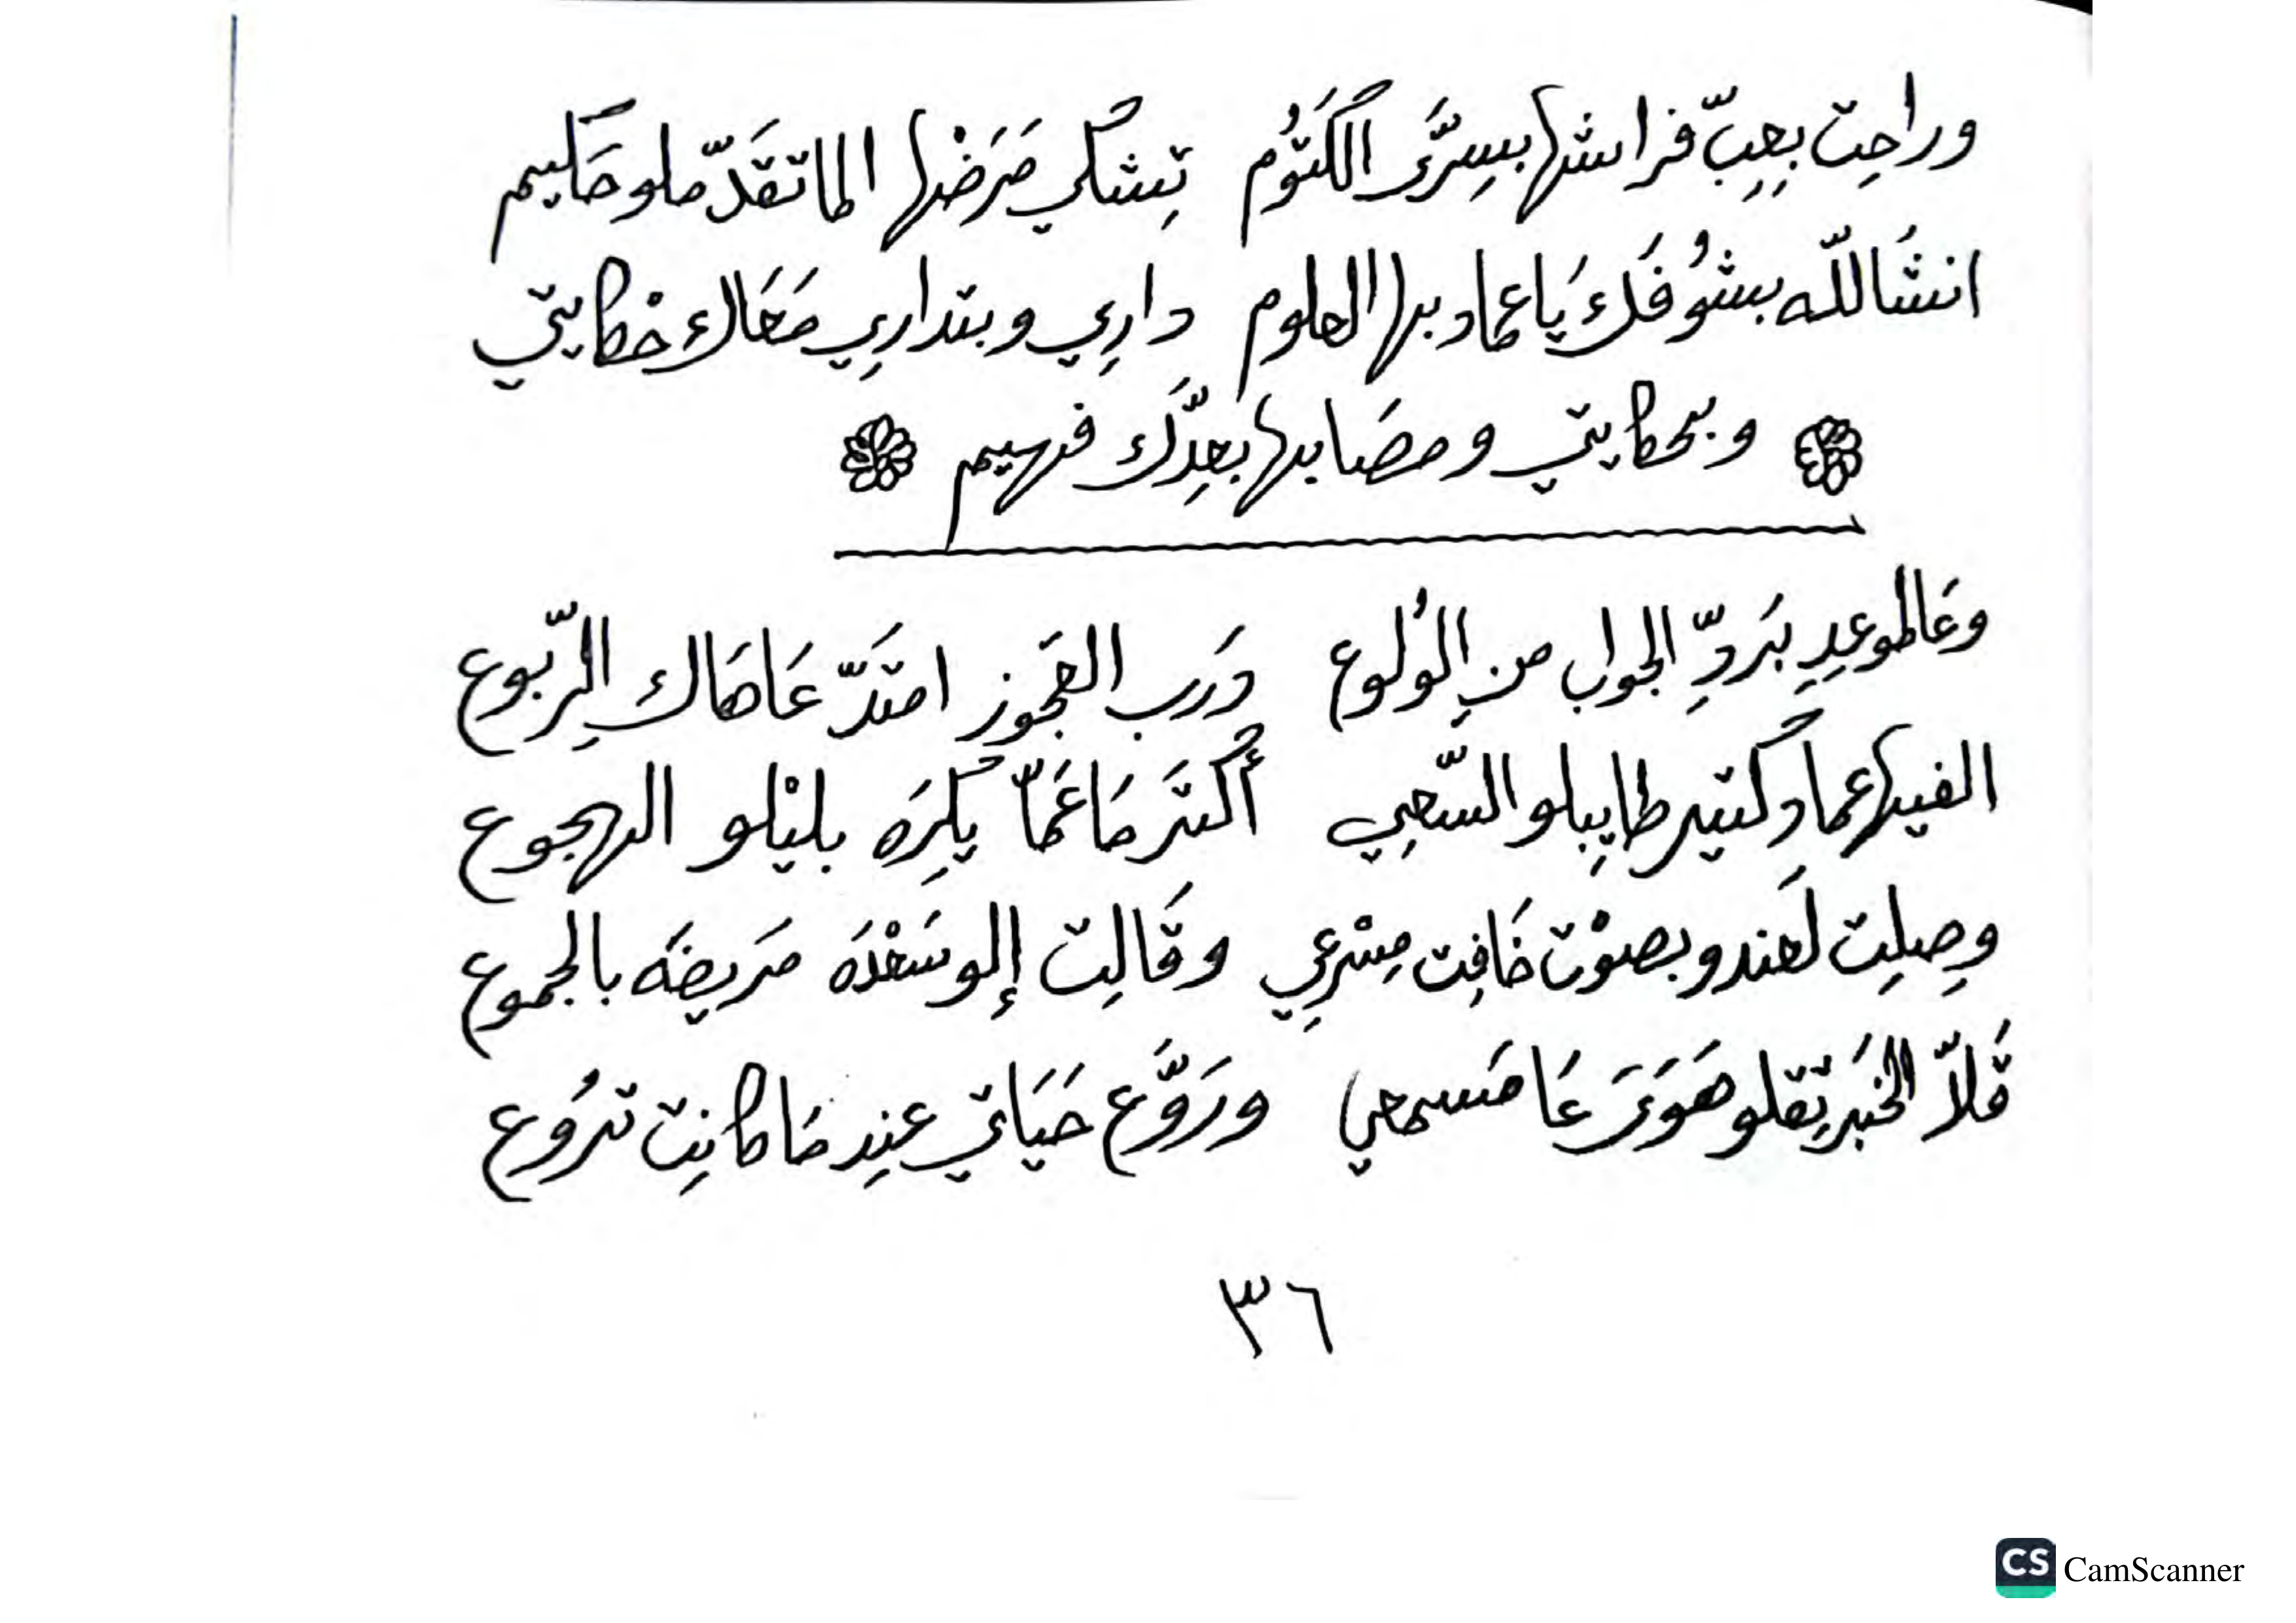 وراحِت بِعِبّ فراشها بسِرَّى الكَتُوُم تِشكي مَرَضْها الما تقَدّملو حَكيم
انشَاللّه بشُوفَك يَا عماد بها العلوم داري وبتداري مَعَاك حْكايتي
وبحكايتي ومصَايبها بعِدَّك فهيم
وعَالموعِدِ بَرَدِّ الجواب منِ الوُلوع دَرب العَجوز امتَدّ عَا هَاك الرّبوع
الفيها عمادِ كتير طايِبلو السّعِي أكتَر مَا عَمّا يِكرَه بليْلو الهجوع
وِصلِت لَعندو بصوْت خَافِت مِسْرعِي وقَالِت إلو سَعْدَه مَريضَه بالجموع
قَلاّ الخَبَر تِقلو هَوَى عَا مَسمعي ورَوَّع حَيَاتي عنِد مَا كانِت ترُوع
٣٦
CS CamScanner